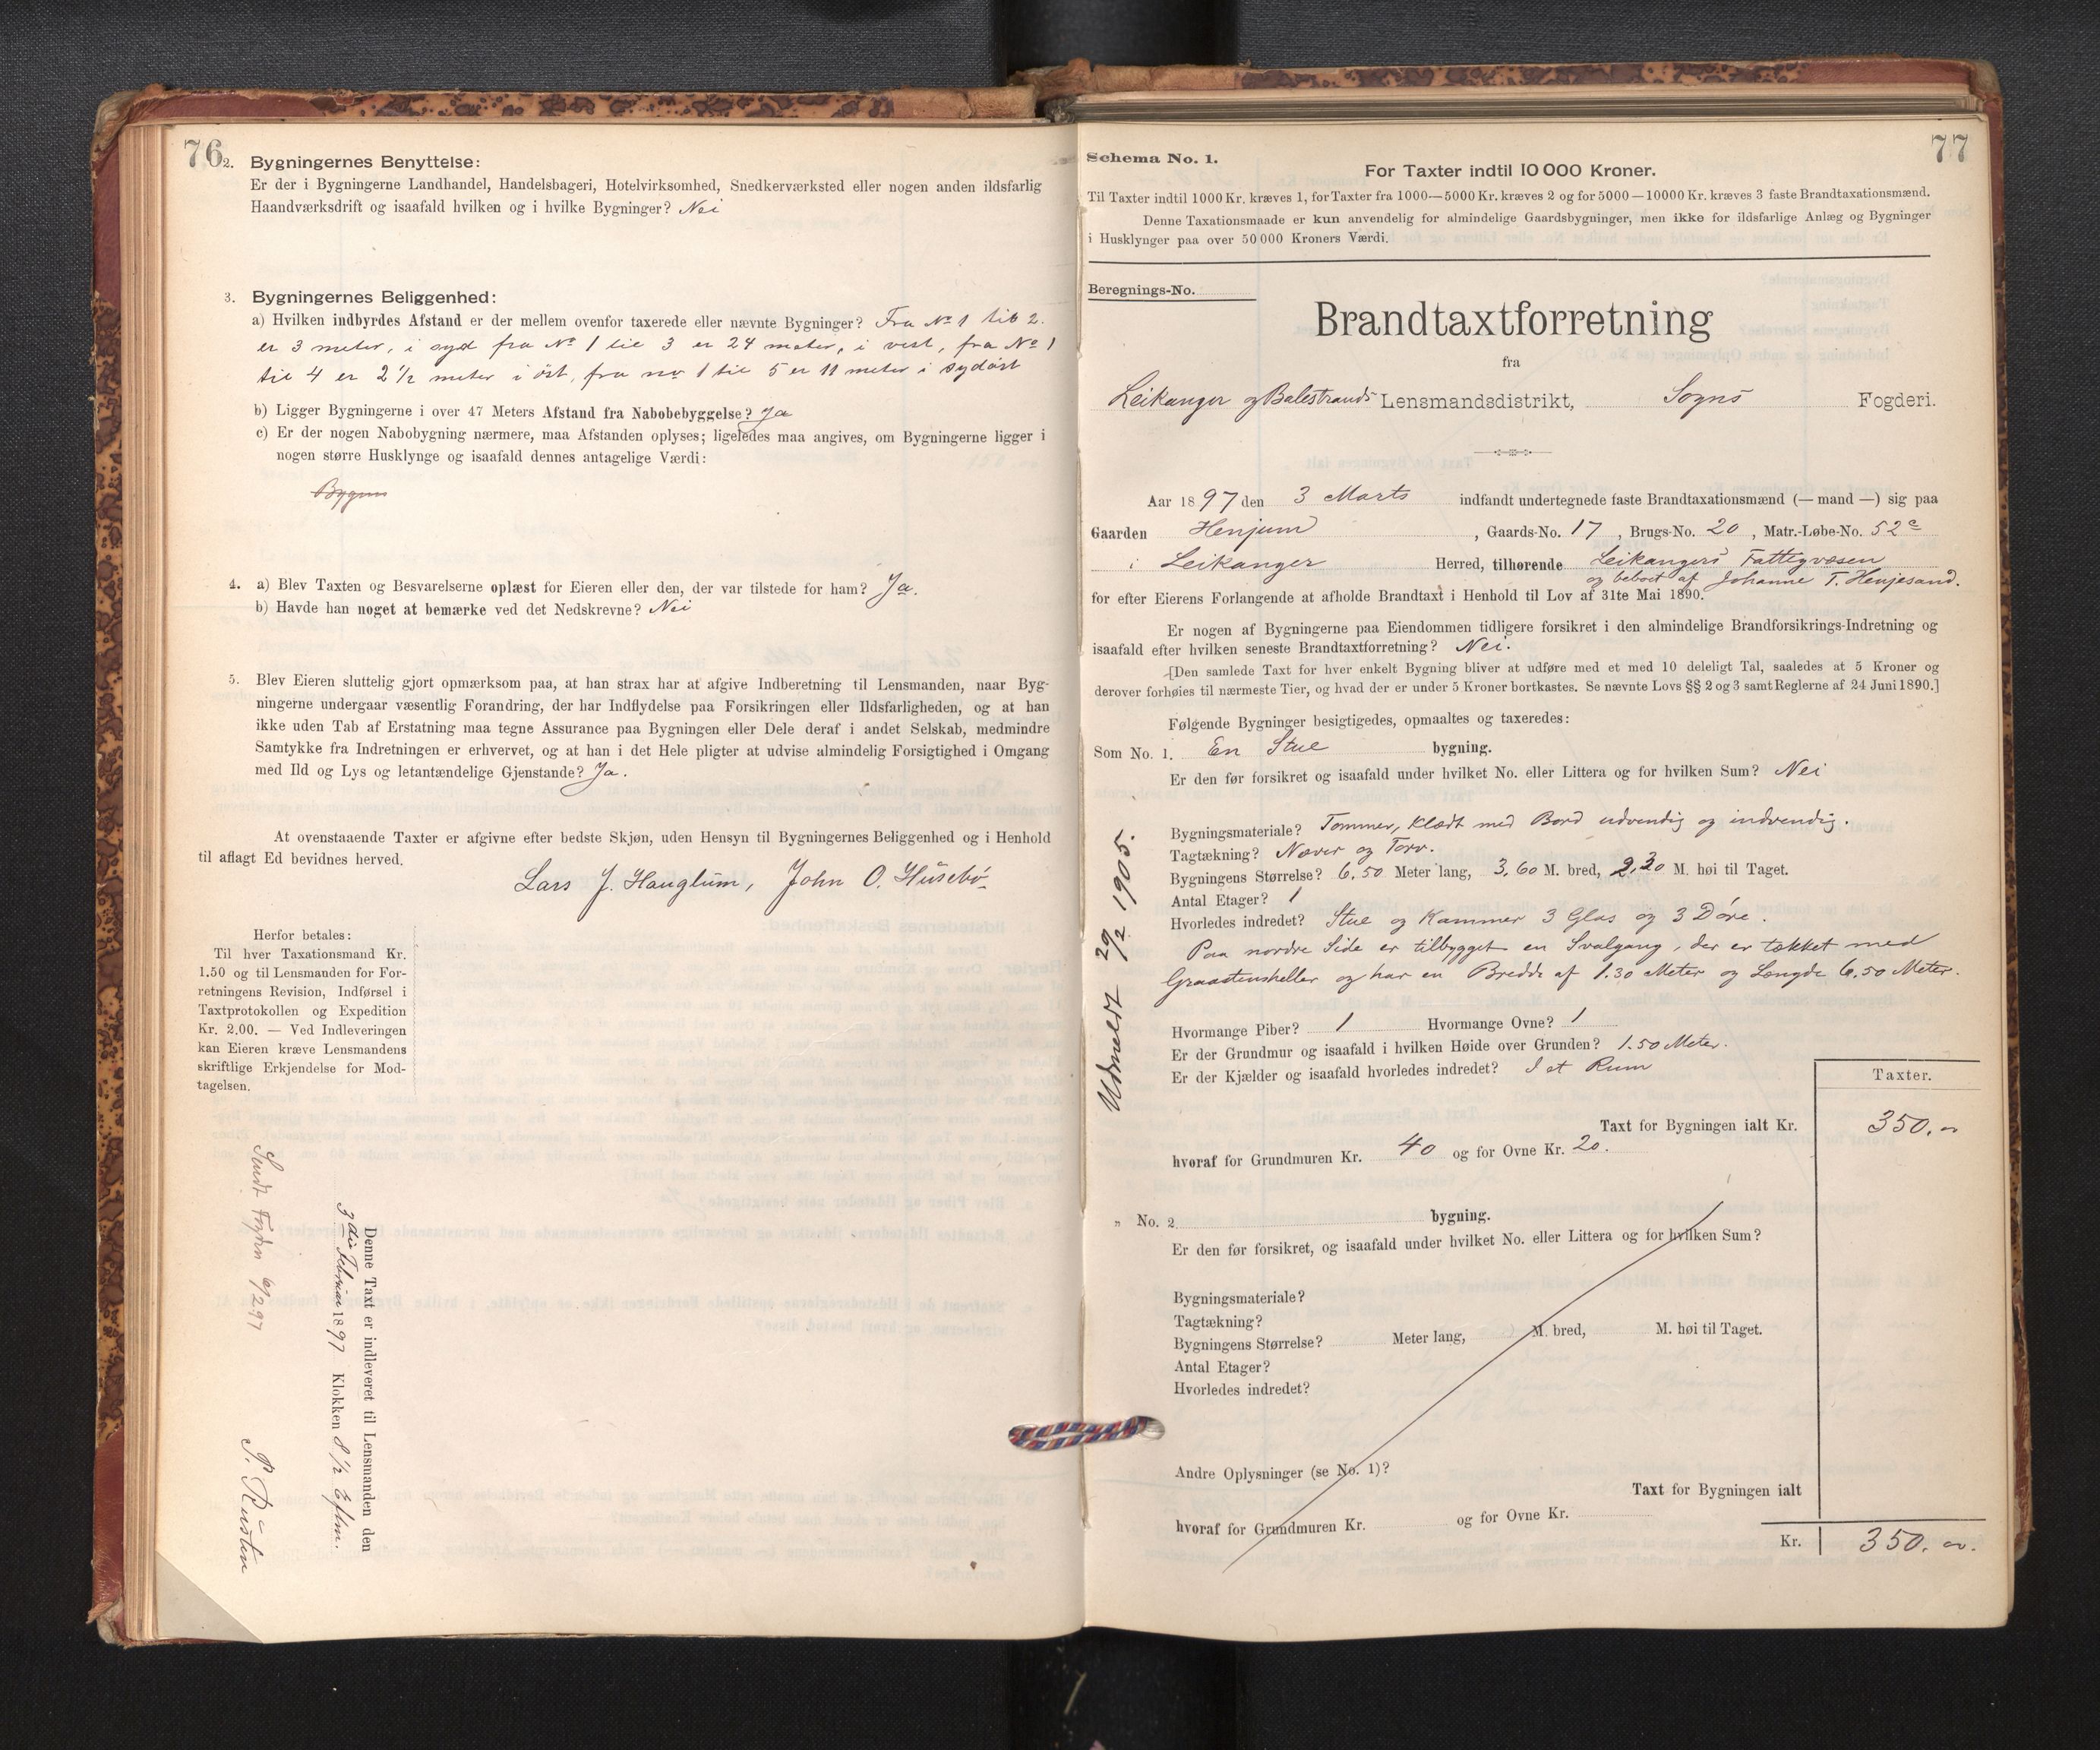 76
2. Bygningernes Benyttelse:
Er der i Bygningerne Landhandel, Handelsbageri, Hotelvirksomhed, Snedkerværksted eller nogen anden ildsfarlig
Haandværksdrift og isaafald hvilken og i hvilke Bygninger? Nei
3. Bygningernes Beliggenhed:
a) Hvilken indbyrdes Afstand er der mellem ovenfor taxerede eller nævnte Bygninger? Fra No 1 til 2.
er 3 meter, i syd fra No 1 til 3 er 24 meter, i vest, fra No 1
til 4 er 2 1/2 meter i öst, fra no 1 til 5 er 11 meter i sydöst
b) Ligger Bygningerne i over 47 Meters Afstand fra Nabobebyggelse? Ja
c) Er der nogen Nabobygning nærmere, maa Afstanden oplyses; ligeledes maa angives, om Bygningerne ligger i
nogen større Husklynge og isaafald dennes antagelige Værdi:
4. a) Blev Taxten og Besvarelserne oplæst for Eieren eller den, der var tilstede for ham? Ja.
b) Havde han noget at bemærke ved det Nedskrevne? Nei
5. Blev Eieren sluttelig gjort opmærksom paa, at han strax har at afgive Indberetning til Lensmanden, naar Byg-
ningerne undergaar væsentlig Forandring, der har Indflydelse paa Forsikringen eller Ildsfarligheden, og at han
ikke uden Tab af Erstatning maa tegne Assurance paa Bygningen eller Dele deraf i andet Selskab, medmindre
Samtykke fra Indretningen er erhvervet, og at han i det Hele pligter at udvise almindelig Forsigtighed i Omgang
med Ild og Lys og letantændelige Gjenstande? Ja.
At ovenstaaende Taxter er afgivne efter bedste Skjøn, uden Hensyn til Bygningernes Beliggenhed og i Henhold
til aflagt Ed bevidnes herved.
Lars J. Hauglum, John O. Husebö
Herfor betales:
Til hver Taxationsmand Kr.
1.50 og til Lensmanden for For-
retningens Revision, Indførsel i
Taxtprotokollen og Expedition
Kr. 2.00. — Ved Indleveringen
kan Eieren kræve Lensmandens
skriftlige Erkjendelse for Mod-
tagelsen.
Denne Taxt er indleveret til Lensmanden den
3die Februar 1897 Klokken 8 1/2 Eftm.
Sendt Fogden 6/2 97
77
Schema No. 1.
For Taxter indtil 10 000 Kroner.
Til Taxter indtil 1000 Kr. kræves 1, for Taxter fra 1000—5000 Kr. kræves 2 og for 5000—10000 Kr. kræves 3 faste Brandtaxationsmænd.
Denne Taxationsmaade er kun anvendelig for almindelige Gaardsbygninger, men ikke for ildsfarlige Anlæg og Bygninger
i Husklynger paa over 50 000 Kroners Værdi.
Beregnings-No.
Brandtaxtforretning
fra
Leikanger og Balestrands Lensmandsdistrikt, Sogns Fogderi.
Aar 1897 den 3 Marts indfandt undertegnede faste Brandtaxationsmænd (— mand —) sig paa
Gaarden Henjum, Gaards-No. 17, Brugs-No. 20, Matr.-Løbe-No. 52c
i Leikanger Herred, tilhørende Leikangers Fattigvæsen
og beboet af Johanne T. Henjesand.
for efter Eierens Forlangende at afholde Brandtaxt i Henhold til Lov af 31te Mai 1890.
Er nogen af Bygningerne paa Eiendommen tidligere forsikret i den almindelige Brandforsikrings-Indretning og
isaafald efter hvilken seneste Brandtaxtforretning? Nei.
[Den samlede Taxt for hver enkelt Bygning bliver at udføre med et med 10 deleligt Tal, saaledes at 5 Kroner og
derover forhøies til nærmeste Tier, og hvad der er under 5 Kroner bortkastes. Se nævnte Lovs §§ 2 og 3 samt Reglerne af 24 Juni 1890.]
Følgende Bygninger besigtigedes, opmaaltes og taxeredes:
Som No. 1. En Stue bygning.
Er den før forsikret og isaafald under hvilket No. eller Littera og for hvilken Sum? Nei
Bygningsmateriale? Tommer, klædt med Bord udvendig og indvendig.
Tagtækning? Næver og Torv.
Bygningens Størrelse? 6.50 Meter lang, 3.60 M. bred, 2.30 M. høi til Taget.
Antal Etager? 1
Hvorledes indredet? Stue og Kammer 3 Glas og 3 Döre.
Paa nordre Side er tilbygget en Svalgang, der er tækket med
Graastensheller og har en Bredde af 1.30 Meter og Længde 6.50 Meter.
Hvormange Piber? 1 Hvormange Ovne? 1
Er der Grundmur og isaafald i hvilken Høide over Grunden? 1.50 Meter.
Er der Kjælder og isaafald hvorledes indredet? I et Rum
Taxter.
Taxt for Bygningen ialt Kr. 350.
hvoraf for Grundmuren Kr. 40 og for Ovne Kr. 20.
Udmeldt 29/2 1905.
" No. 2 bygning.
Er den før forsikret, og isaafald under hvilket No. eller Littera og for hvilken Sum?
Bygningsmateriale?
Tagtækning?
Bygningens Størrelse? Meter lang, M. bred, M. høi til Taget.
Antal Etager?
Hvorledes indredet?
Andre Oplysninger (se No. 1)?
Taxt for Bygningen ialt
hvoraf for Grundmuren Kr. og for Ovne Kr.
Kr. 350.